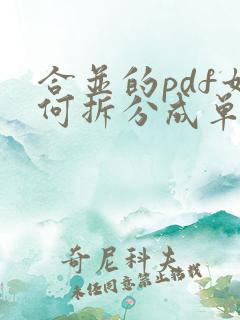 合并的pdf如
何拆分成单
奇尼科夫
未经同意禁止转载